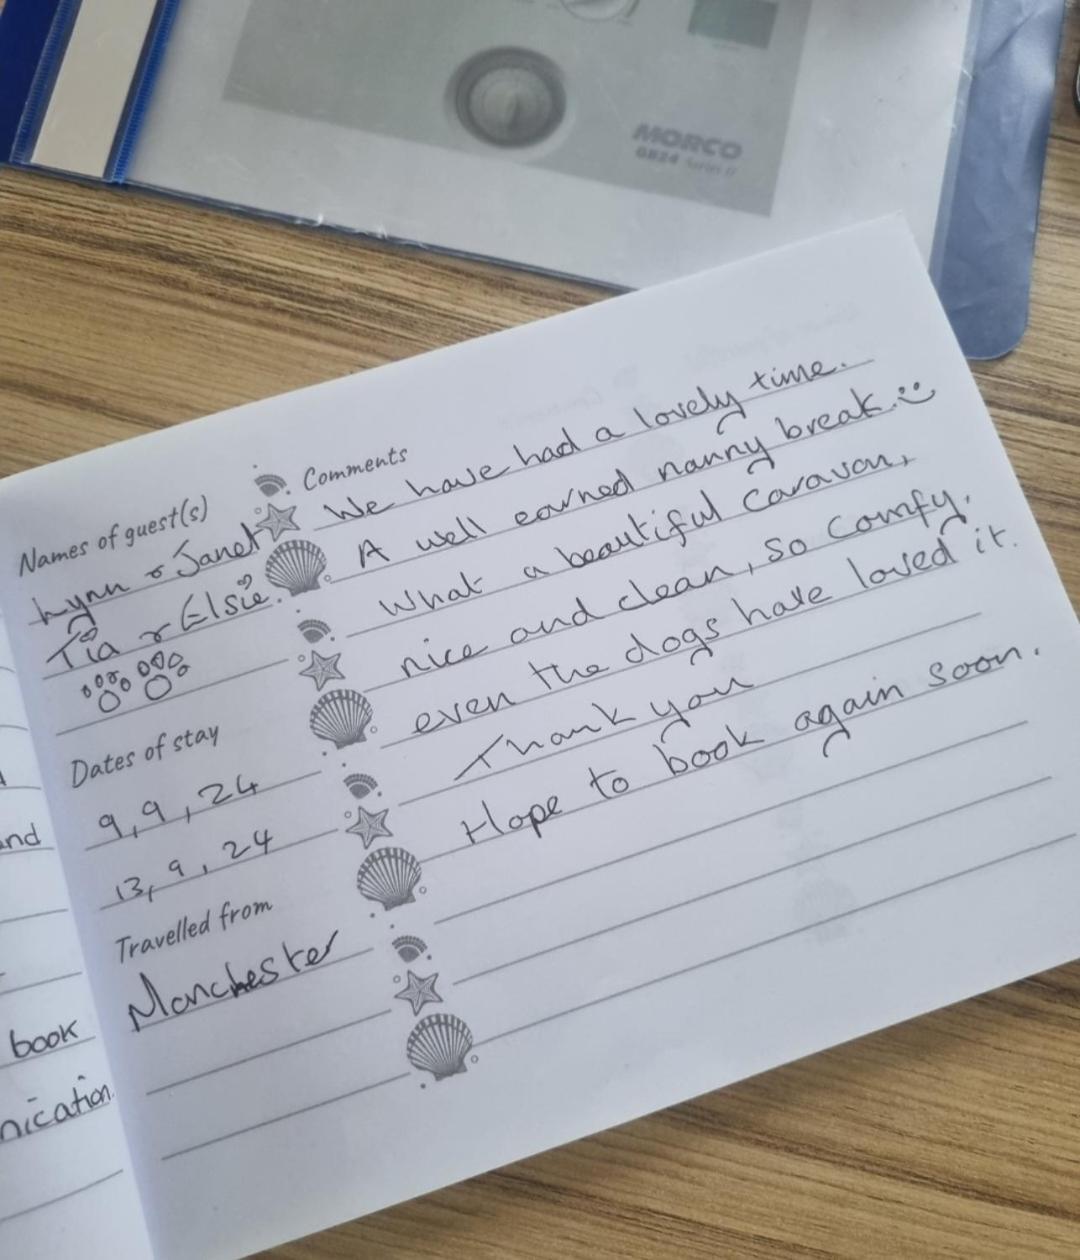 MORCO
GB24 Series II
Names of guest(s)
Lynn & Janet
Tia & Elsie.
Dates of stay
9,9,24
13,9,24
Travelled from
Manchester
Comments
We have had a lovely time.
A well earned nanny break.
What a beautiful caravan,
nice and clean, so comfy,
even the dogs have loved it.
Thank you
Hope to book again soon.
nd
book
nication